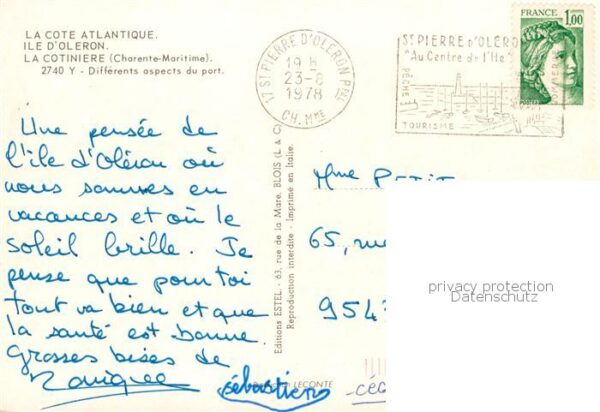 LA COTE ATLANTIQUE.
ILE D'OLERON.
LA COTINIERE (Charente-Maritime).
2740 Y - Différents aspects du port.
17 ST PIERRE D'OLERON Pal
19 H
23-8
1978
CH. Mme
ST PIERRE d'OLERO
"Au Centre de l'Ile"
PÊCHE
TOURISME
FRANCE
1,00
POSTES
Une pensée de
l'ile d'Oléron où
nous sommes en
vacances et où le
soleil brille. Je
pense que pour toi
tout va bien et que
la santé est bonne.
Grosses bises de
Monique
Sébastien
Editions ESTEL - 63, rue de la Mare, BLOIS (L & C)
Reproduction interdite - Imprimé en Italie.
LECONTE
Mme PETIT
65, rue
9543
CEC
privacy protection
Datenschutz